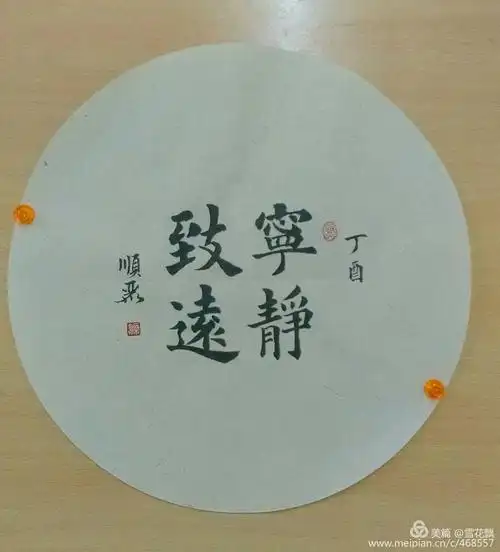 丁酉
寧靜
致遠
順彩
美篇 @雪花飘
www.meipian.cn/c/468557